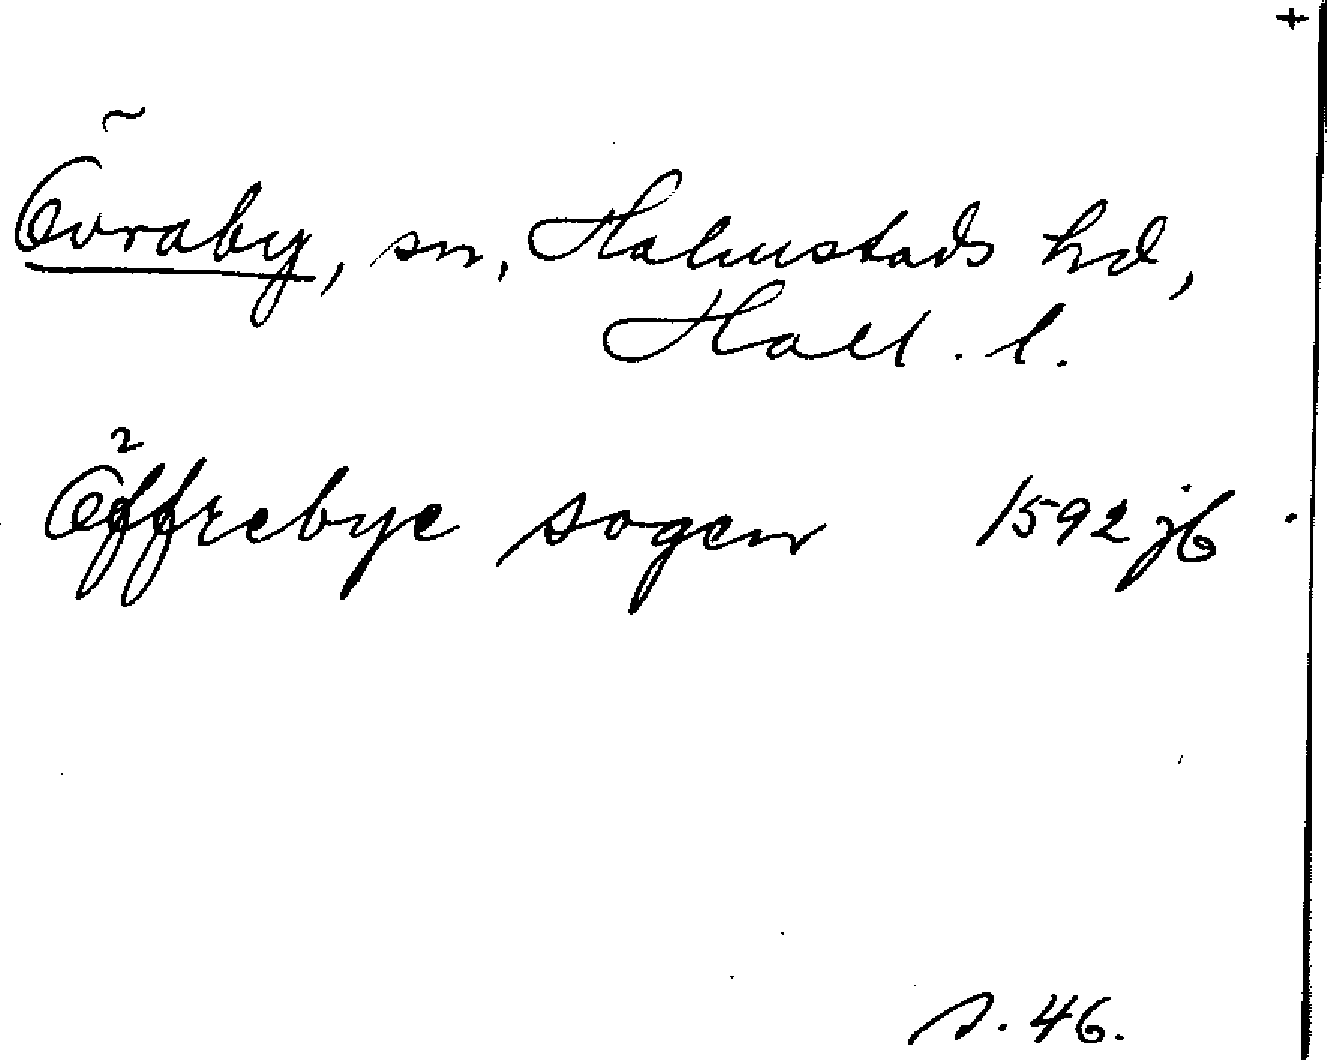 +
Övraby, sn, Halmstads hd,
Hall. l.
Öffrebye sogen 1592 jb
s. 46.